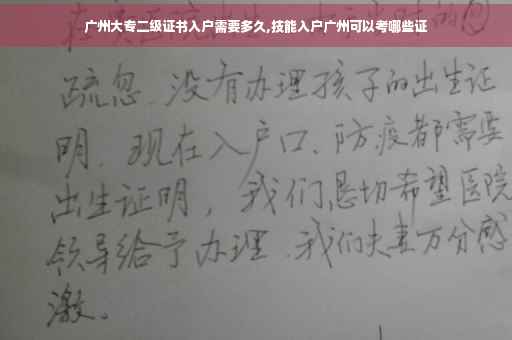 广州大专二级证书入户需要多久,技能入户广州可以考哪些证
疏忽.没有办理孩子的出生证
明.现在入户口、防疫都需要
出生证明，我们恳切希望医院
领导给予办理.我们夫妻万分感
激。